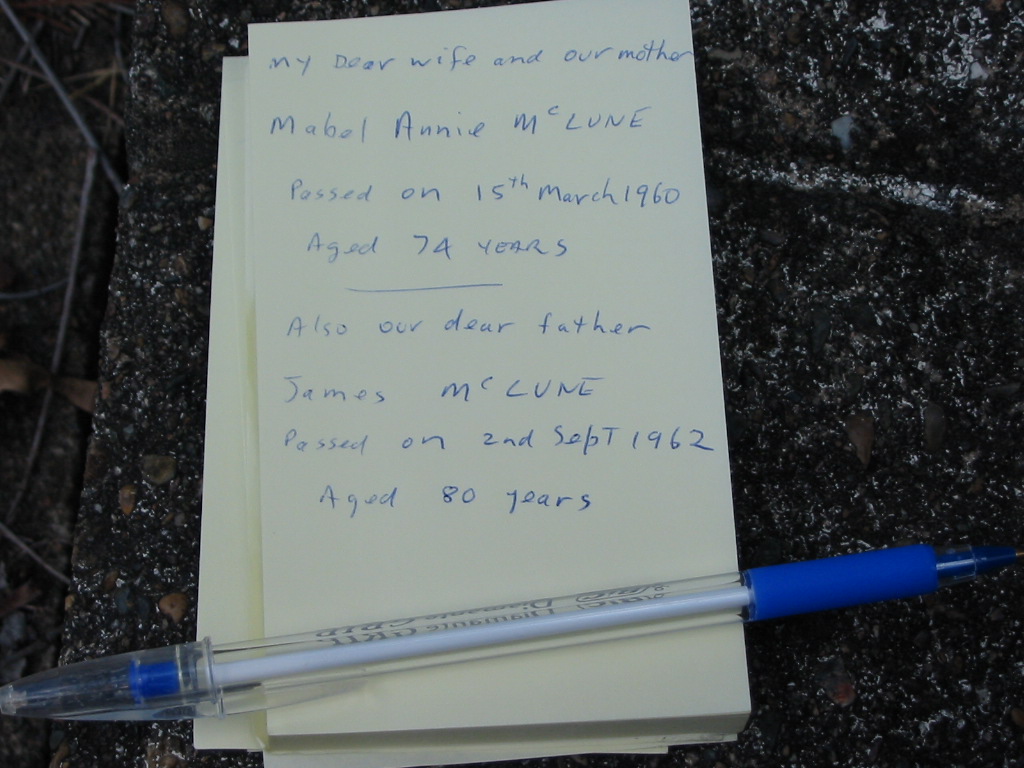 my Dear wife and our mother
Mabel Annie McLUNE
Passed on 15th March 1960
Aged 74 YEARS
Also our dear father
James McLUNE
Passed on 2nd SepT 1962
Aged 80 years
Diamante GRIP